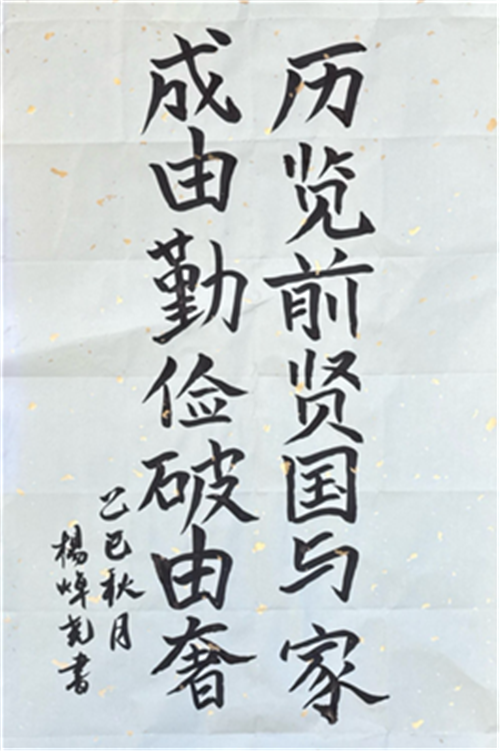 历览前贤国与家
成由勤俭破由奢
乙巳秋月
杨焯尧書